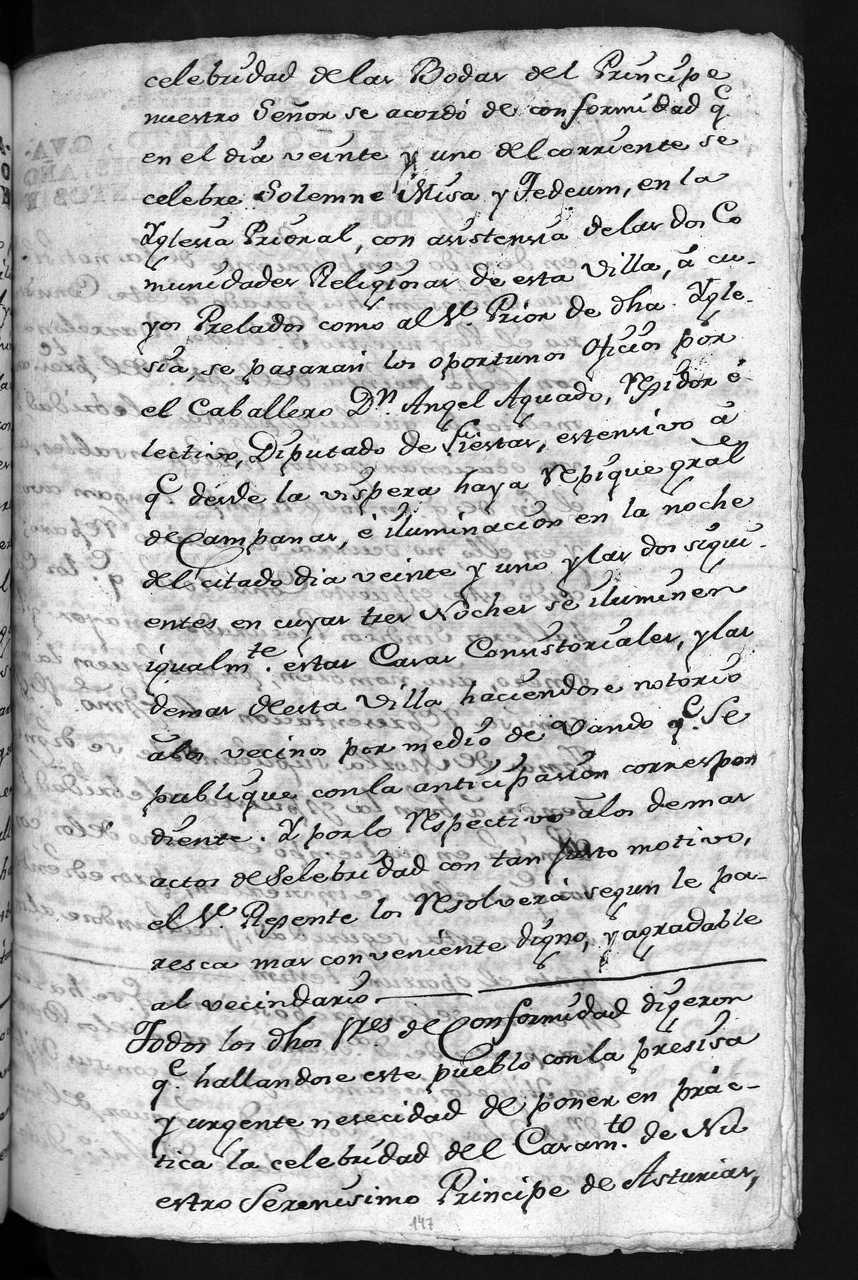 celebridad de las Bodas del Principe
nuestro Señor se acordó de conformidad q.e
en el dia veinte y uno del corriente se
celebre Solemne Misa y Tedeum, en la
Yglesia Prioral, con asistensia de las dos Co
munidades Religiosas de esta Villa, á cu-
yos Prelados como al V.e Prior de dha. Ygle-
sia, se pasarán los oportunos oficios por
el Caballero D.n Angel Aguado, Rexidor é
lectivo, Diputado de Fiestas, estensivo á
q.e desde la vispera haya Repique gral
de Campanas, é iluminacion en la noche
del citado dia veinte y uno y las dos sigui-
entes en cuyas tres Noches se iluminen
igualm.te estas Casas Consistoriales, y las
demas desta Villa haciendose notorio
álos vecinos por medio de Vando q.e Se
publique con la anticipasion correspon
diente. Y por lo Respectivo álos demas
actos de Selebridad con tan justo motivo,
el S.r Regente los Resolverá segun le pa-
resca mas conveniente digno, y agradable
al vecindario
Todos los dhos S.res de Conformidad digeron
q.e hallandose este pueblo con la presisa
y urgente nesecidad de poner en prác-
tica la celebridad del Casam.to de Nu
estro Serenisimo Principe de Asturias,
147